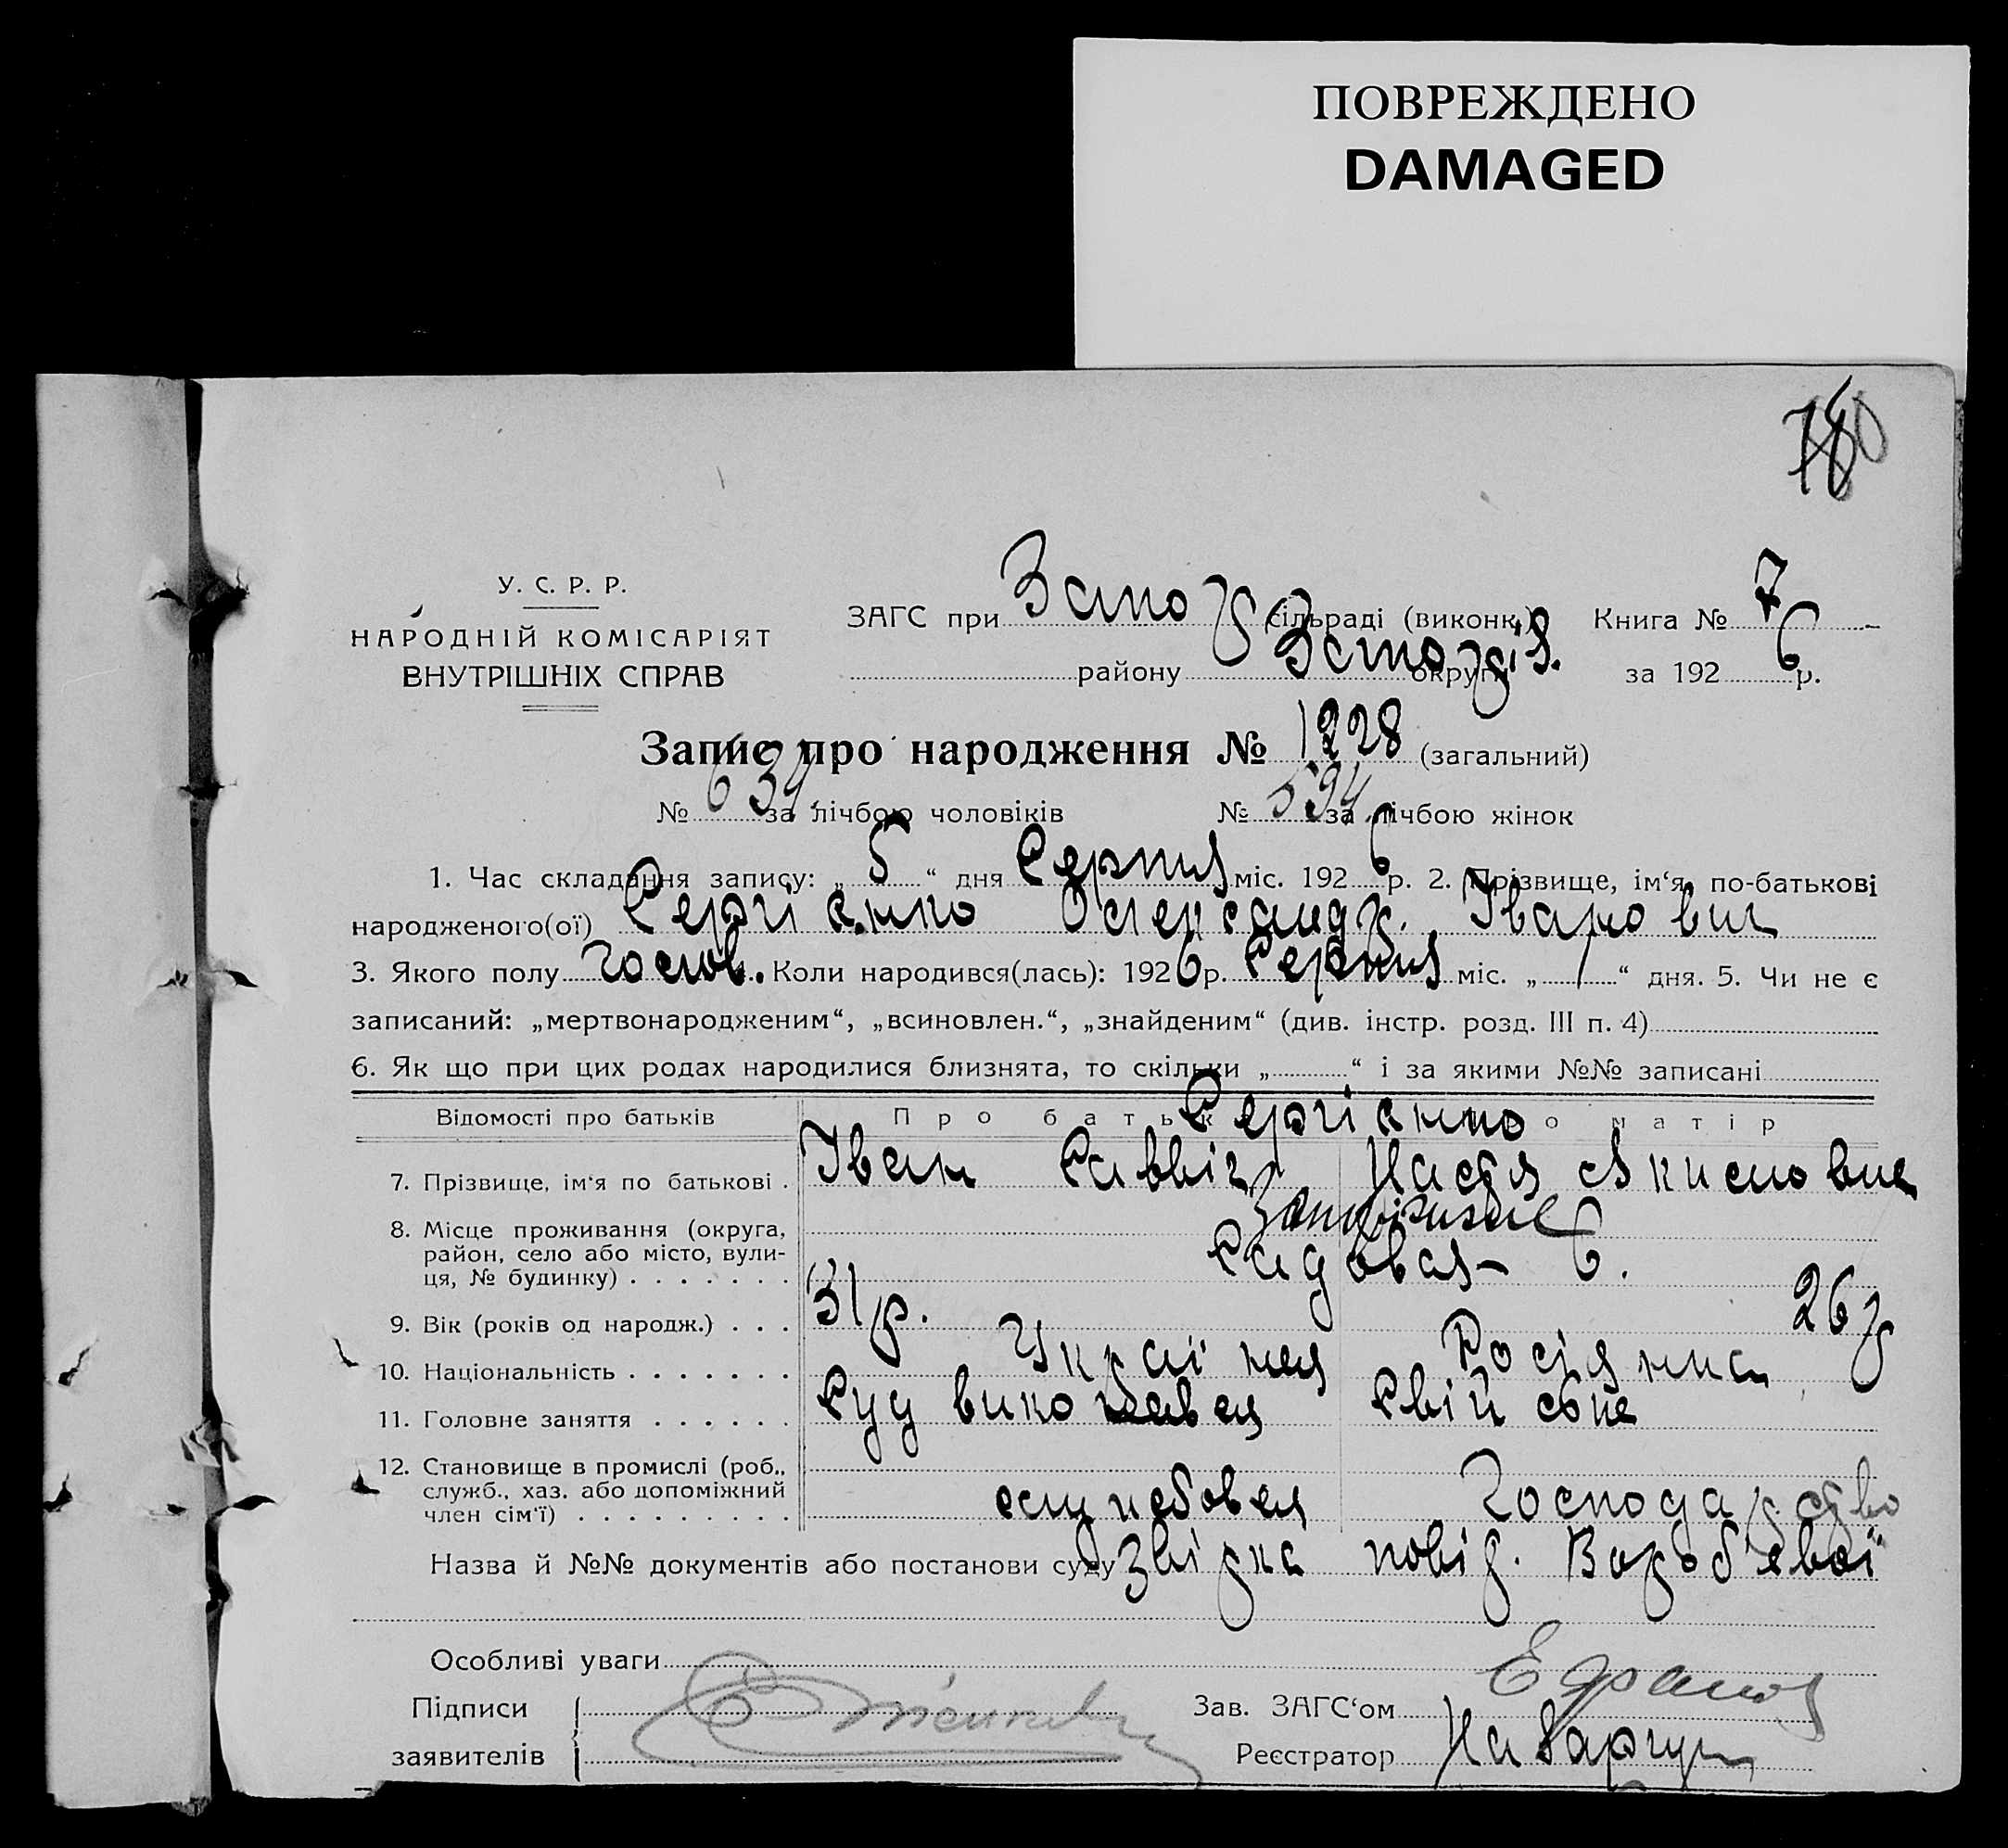 ПОВРЕЖДЕНО
DAMAGED
780
У. С. Р. Р.
НАРОДНІЙ КОМІСАРІЯТ
ВНУТРІШНІХ СПРАВ
ЗАГС при Запор сільраді (виконк.) Книга № 7
району Запоріз. округи за 1926 р.
Запис про народження № 1228 (загальний)
№ 634 за лічбою чоловіків № 594 за лічбою жінок
1. Час складання запису: „5“ дня Серпня міс. 1926 р. 2. Прізвище, ім‘я, по-батькові
народженого(ої) Сергієнко Олександр. Іванович
3. Якого полу чолов. Коли народився(лась): 1926 р. Серпня міс. „1“ дня. 5. Чи не є
записаний: „мертвонародженим“, „всиновлен.“, „знайденим“ (див. інстр. розд. III п. 4)
6. Як що при цих родах народилися близнята, то скільки „ “ і за якими №№ записані
Відомості про батьків Про батьк о матір
Сергієнко
7. Прізвище, ім‘я по батькові . Іван Саввіч Настя Якимовна
8. Місце проживання (округа,
район, село або місто, вули-
ця, № будинку) . . . . . . . Садовая – 6.
9. Вік (років од народж.) . . . 31 р. 26 р
10. Національність . . . . . . . Українец Росіянка
11. Головне заняття . . . . . . Суд виконавец Свій
12. Становище в промислі (роб.,
служб., хаз. або допоміжний
член сім‘ї) . . . . . . . . . службовец Господарство
Назва й №№ документів або постанови суду Звірка повід. Вороб'євої
Особливі уваги
Підписи
заявителів
Зав. ЗАГС‘ом
Реєстратор